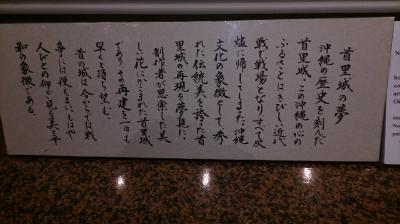 首里城の夢
沖縄の歴史を刻んだ
首里城、この沖縄の心の
ふるさとはきびしい近代
戦で戦場となりすべて灰
燼に帰してしまった。沖縄
文化の象徴として、秀
れた伝統美を誇った首
里城の再現を夢み見た
制作者が思索した美
し、花にかこまれた首里城
でありその再建を一日も
早くと待ち望む。
昔の城は今からでは戦
争には使えまい。もはや
人びとの仰ぎ見る美と平
和の象徴である。